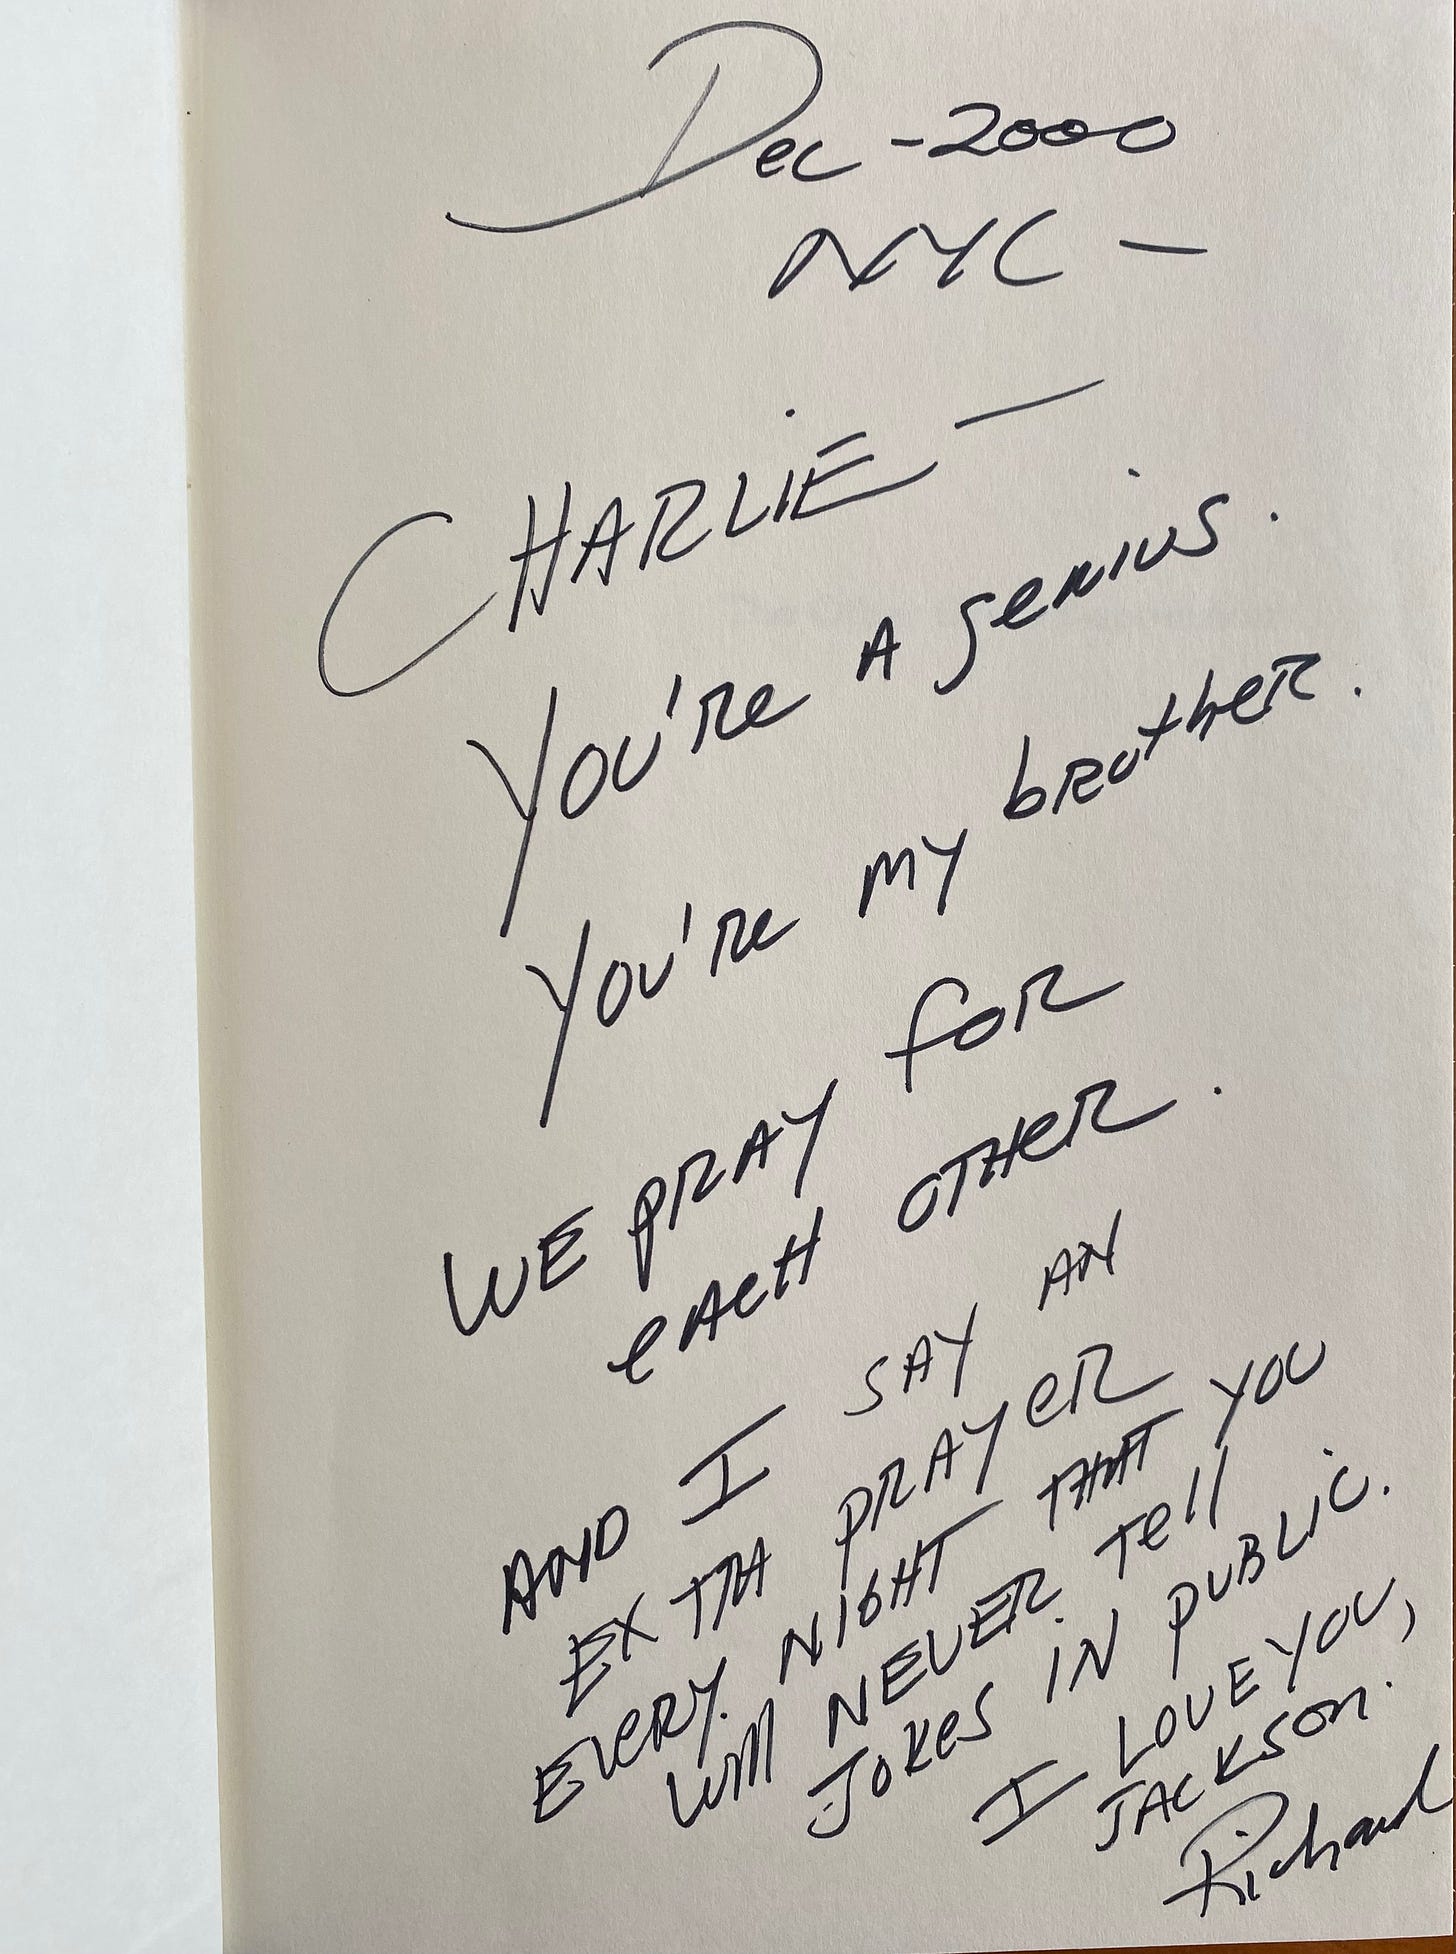 Dec - 2000
NYC —
CHARLIE —
You're A genius.
You're my brother.
WE pray for
each other.
AND I SAY AN
EXTRA PRAYER
EVERY NIGHT THAT YOU
will NEVER Tell
JOKES IN PUBLIC.
I LOVE YOU,
JACKSON.
Richard